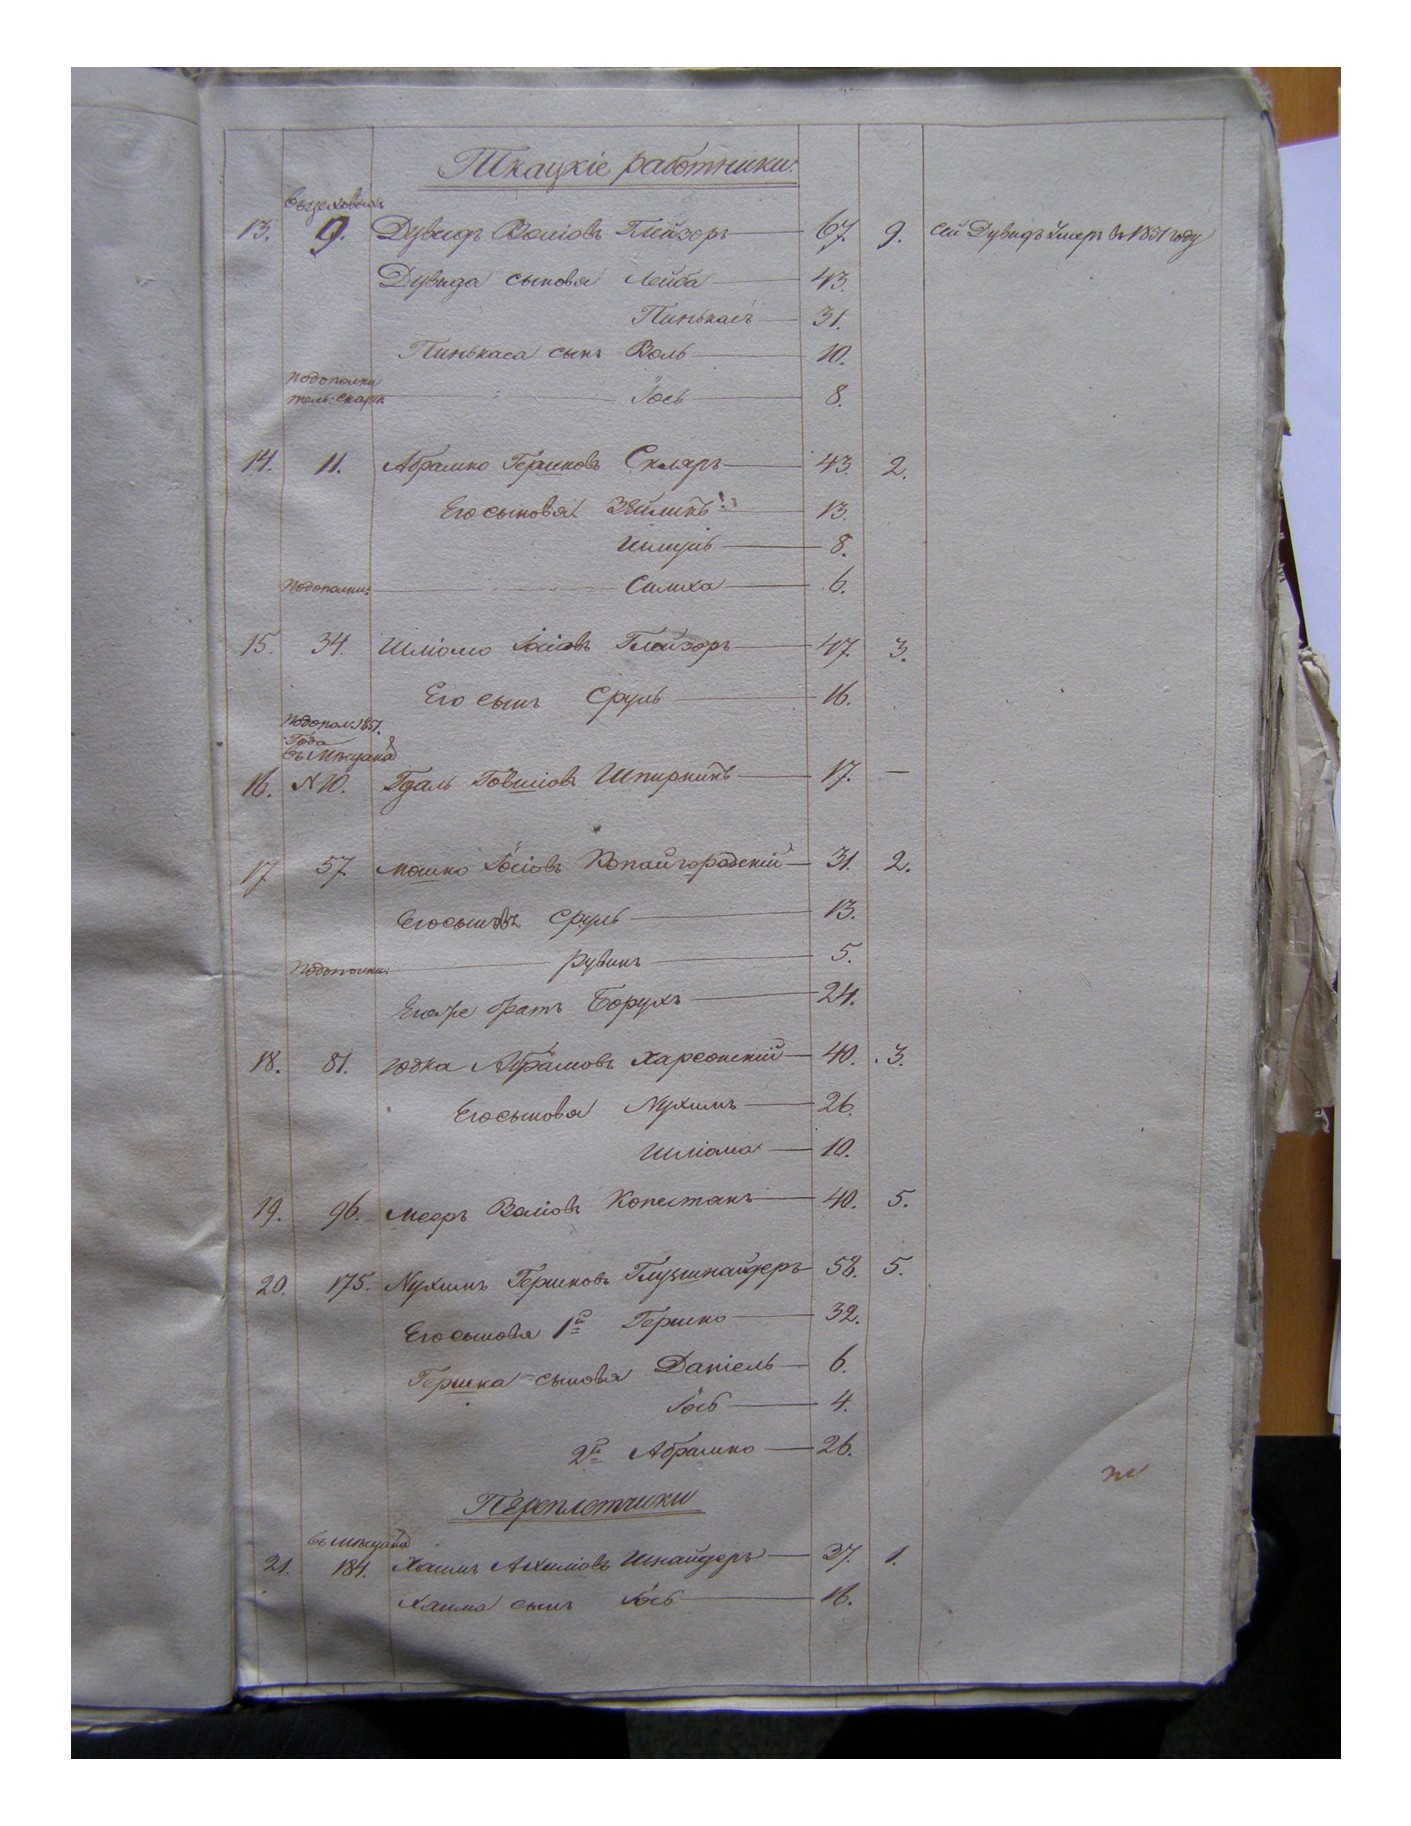 Ткацкіе работники.
въ цеховыхъ
13. 9. Дувидъ Воліовъ Глейзоръ 67. 9. сей Дувидъ умеръ въ 1851 году
Дувида сыновя Лейба 43.
Пинькасъ 31.
Пинькаса сынъ Воль 10.
по дополни
тель: скаски Іось 8.
14. 11. Абрамко Гершковъ Скляръ 43. 2.
Его сыновя Зейликъ 13.
Шмуль 8.
по дополни: Симха 6.
15. 34. Шліомо Іосіовъ Глейзоръ 47. 3.
Его сынъ Сруль 16.
по допол: 1851.
Года
въ мѣщана
16. N 10. Гдаль Говшіовъ Шпиркинъ 17. —
17. 57. Мошко Іосіовъ Копайгородскій 31. 2.
Его сыновъ Сруль 13.
по дополни: Рувинъ 5.
Его же братъ Борухъ 24.
18. 81. Юдка Абрамовъ Харсонскій 40. 3.
Его сыновя Нухимъ 26.
Шліома 10.
19. 96. Мееръ Воліовъ 40. 5.
20. 175. Нухимъ Гершковъ 58. 5.
Его сыновя 1й Гершко 32.
Гершка сыновя Даніель 6.
Іось 4.
2й Абрамко 26.
Переплетчики
въ мѣщана
21. 184. Хаимъ Шнайдеръ 37. 1.
Хаима сынъ Іось 16.